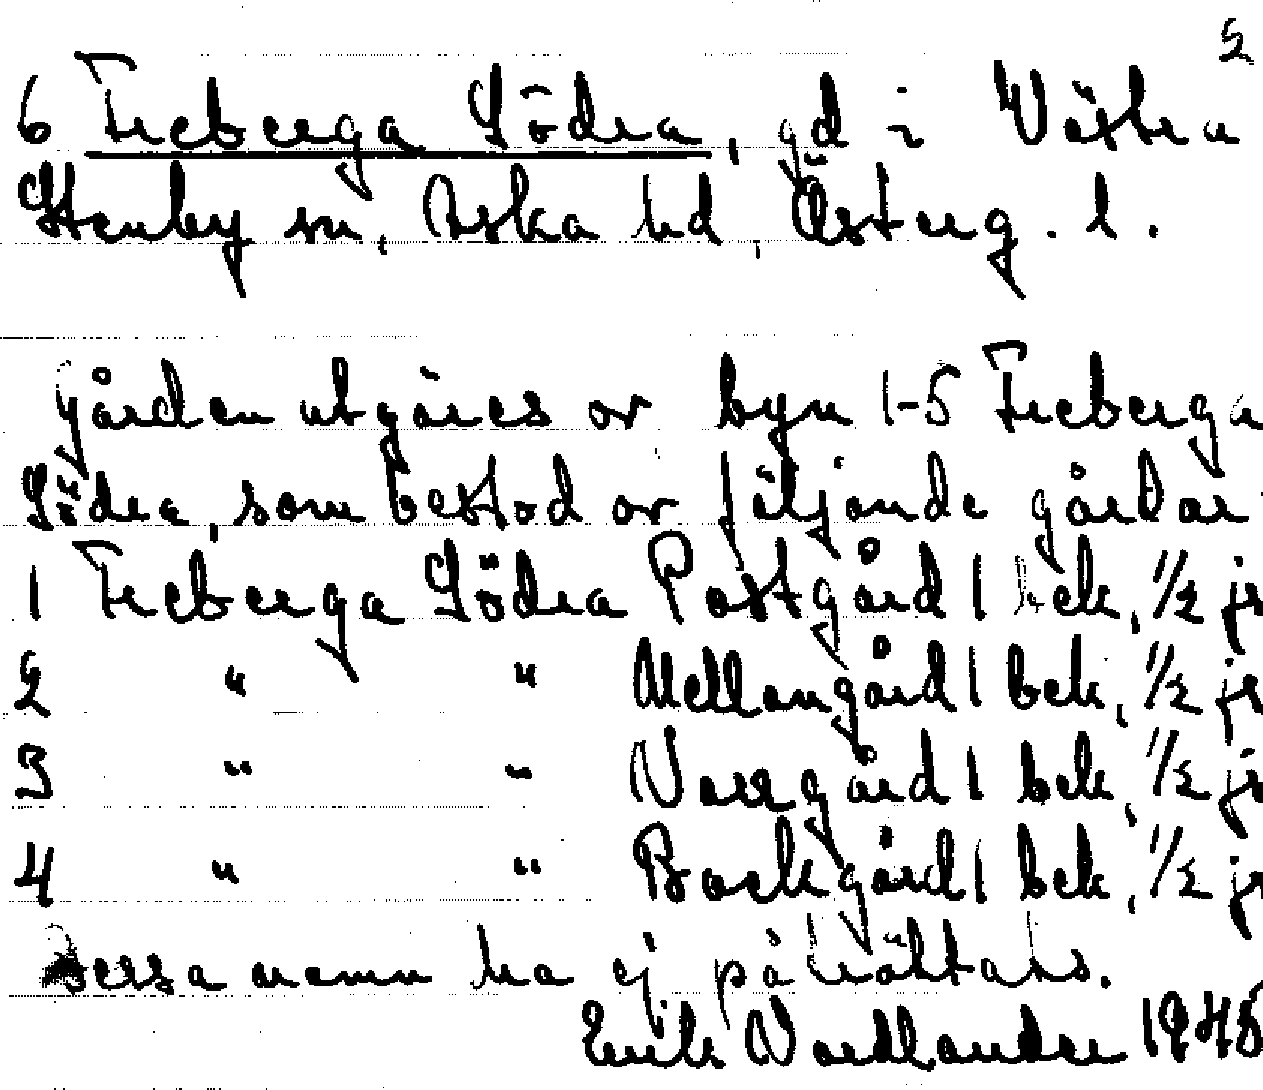 2
6 Freberga Södra, gd i Västra
Stenby sn, Aska hd, Österg. l.
gården utgöres av byn 1-5 Freberga
Södra, som bestod av följande gårdar
1 Freberga Södra Postgård 1 bek, 1/2 jr
2 " " Mellangård 1 bek, 1/2 jr
3 " " Norrgård 1 bek, 1/2 jr
4 " " Backgård 1 bek, 1/2 jr
Dessa namn ha ej påträffats.
Erik Nordlander 1945